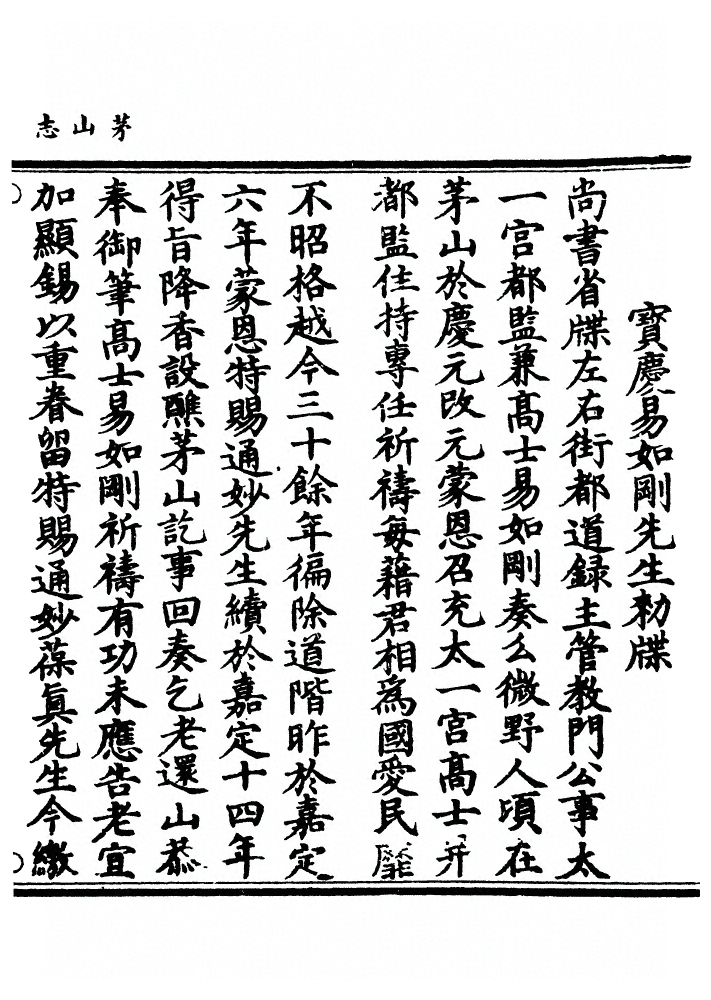 茅山志
寶慶易如剛先生勑牒
尚書省牒左右街都道録主管教門公事太
一宫都監兼髙士易如剛奏么微野人頃在
茅山於慶元改元蒙恩召充太一宫髙士并
都監住持專任祈禱每藉君相爲國愛民靡
不昭格越今三十餘年徧除道階昨於嘉定
六年蒙恩特賜通妙先生續於嘉定十四年
得旨降香設醮茅山訖事回奏乞老還山恭
奉御筆髙士易如剛祈禱有功未應告老宜
加顯錫以重眷留特賜通妙葆眞先生今繳